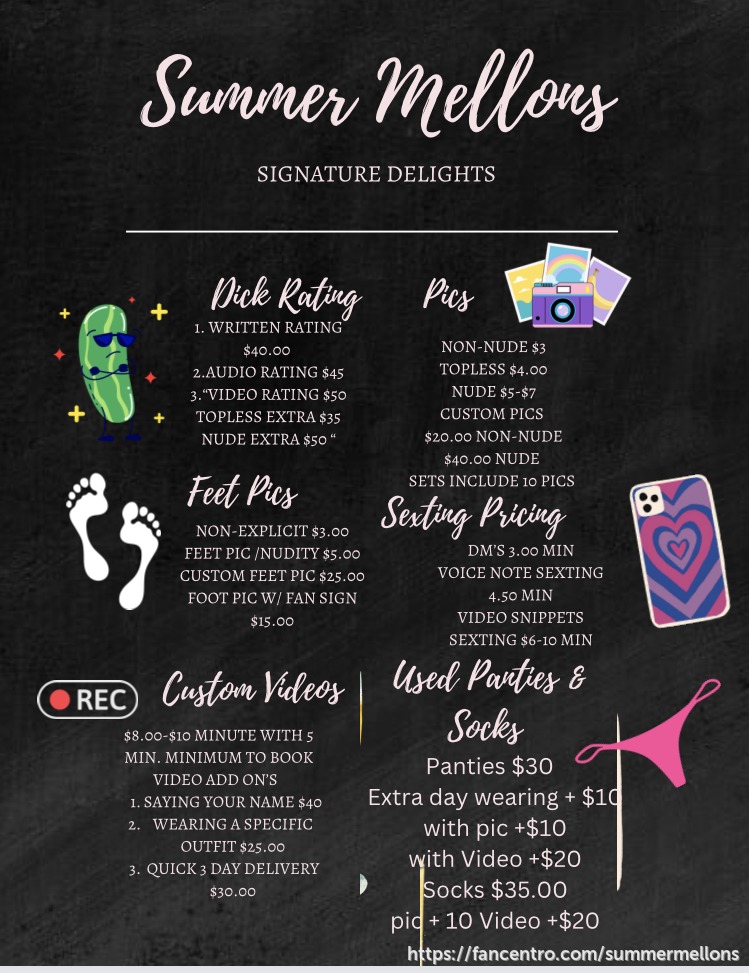 Summer Mellons
SIGNATURE DELIGHTS
Dick Rating
1. WRITTEN RATING
$40.00
2.AUDIO RATING $45
3.“VIDEO RATING $50
TOPLESS EXTRA $35
NUDE EXTRA $50 “
Pics
NON-NUDE $3
TOPLESS $4.00
NUDE $5-$7
CUSTOM PICS
$20.00 NON-NUDE
$40.00 NUDE
SETS INCLUDE 10 PICS
Feet Pics
NON-EXPLICIT $3.00
FEET PIC /NUDITY $5.00
CUSTOM FEET PIC $25.00
FOOT PIC W/ FAN SIGN
$15.00
Sexting Pricing
DM'S 3.00 MIN
VOICE NOTE SEXTING
4.50 MIN
VIDEO SNIPPETS
SEXTING $6-10 MIN
REC
Custom Videos
$8.00-$10 MINUTE WITH 5
MIN. MINIMUM TO BOOK
VIDEO ADD ON'S
1. SAYING YOUR NAME $40
2. WEARING A SPECIFIC
OUTFIT $25.00
3. QUICK 3 DAY DELIVERY
$30.00
Used Panties &
Socks
Panties $30
Extra day wearing + $10
with pic +$10
with Video +$20
Socks $35.00
pic + 10 Video +$20
https://fancentro.com/summermellons